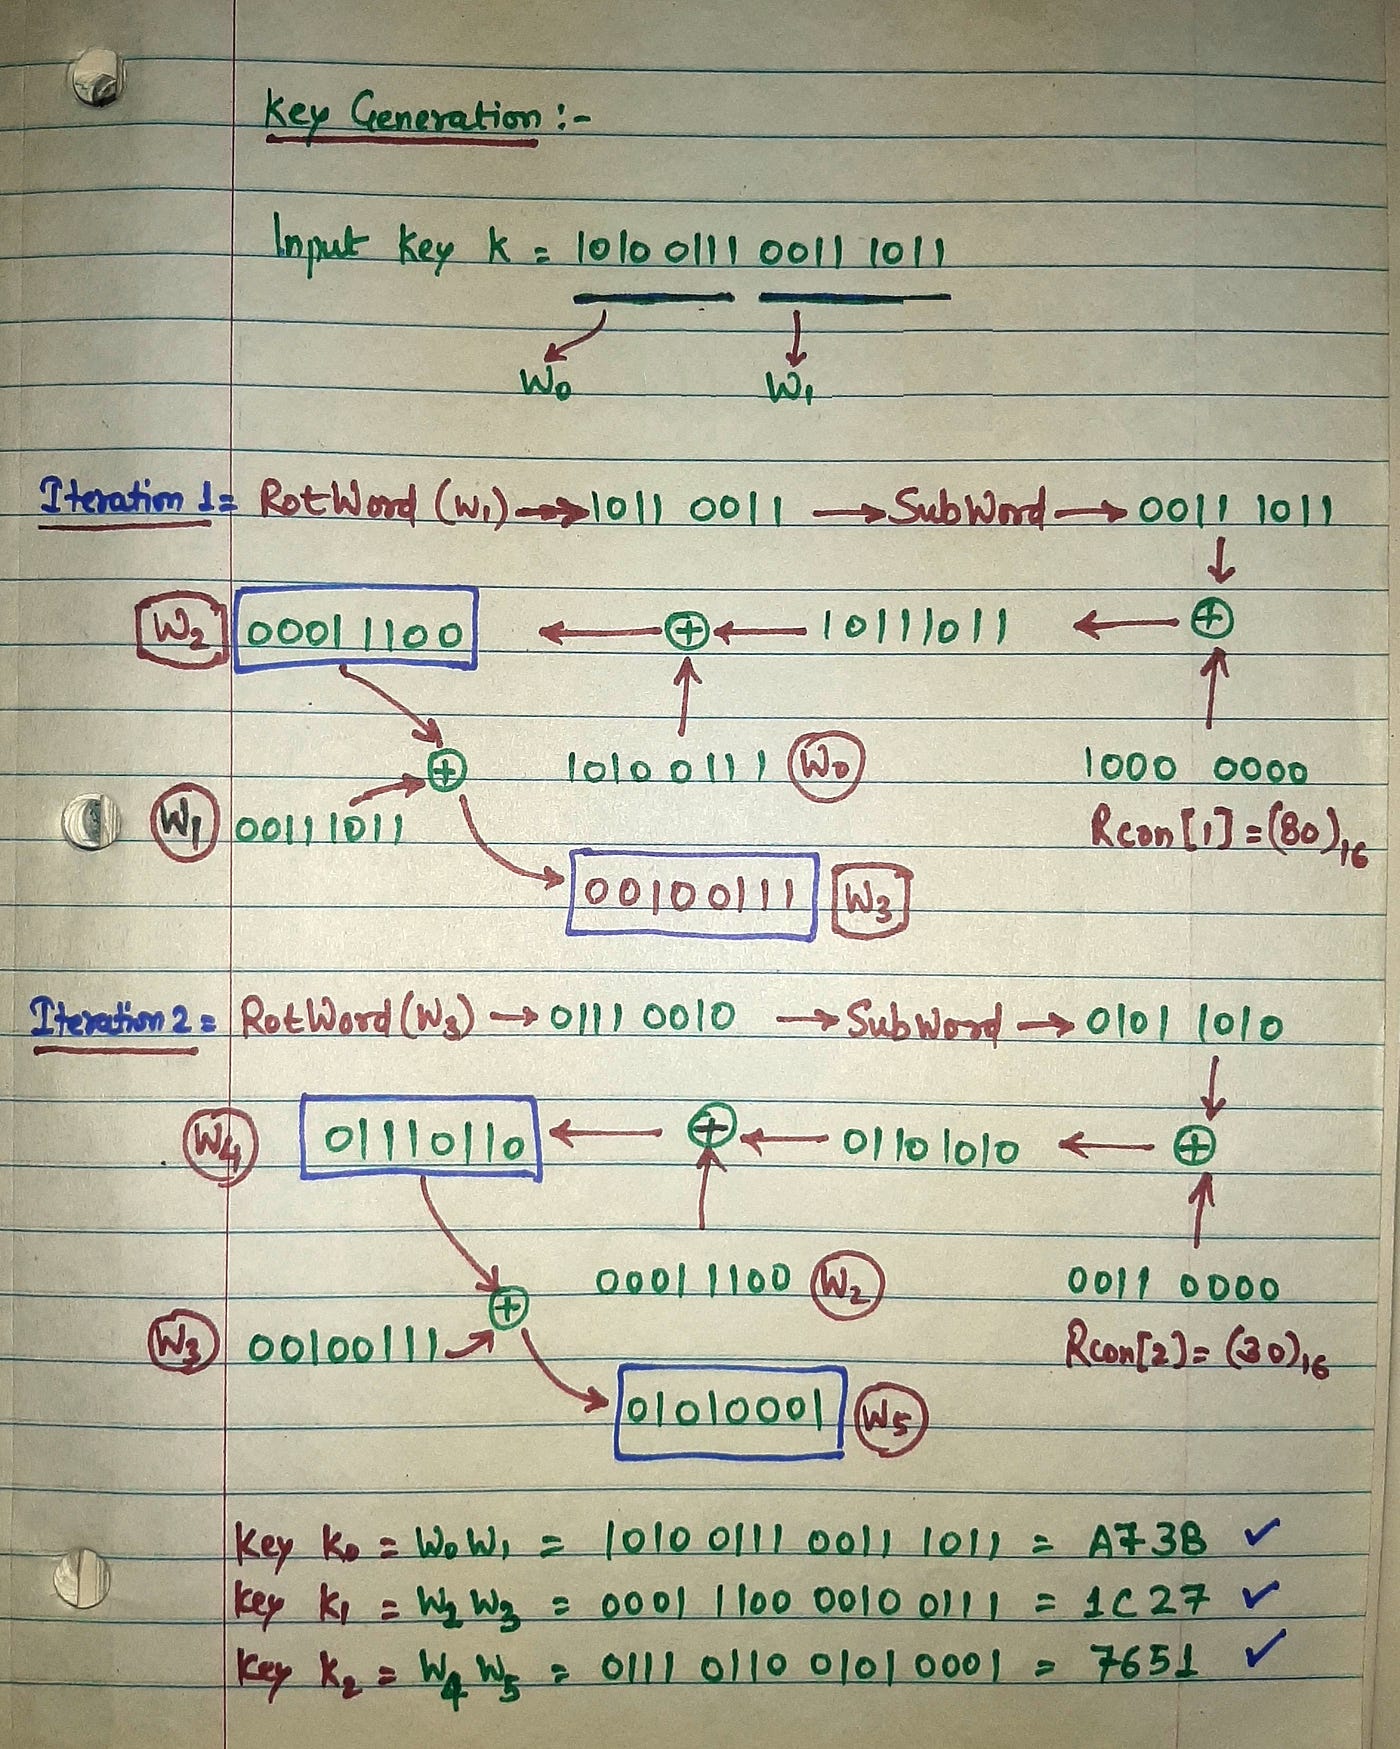 Key Generation :-
Input Key K = 1010 0111 0011 1011
W₀ W₁
Iteration 1 = RotWord (W₁) →→ 1011 0011 → SubWord → 0011 1011
W₂ 00011100 ← ⊕ ← 10111011 ← ⊕
⊕ 10100111 W₀ 1000 0000
W₁ 00111011 Rcon[1] = (80)₁₆
00100111 W₃
Iteration 2 = RotWord (W₃) → 0111 0010 → SubWord → 0101 1010
W₄ 01110110 ← ⊕ ← 01101010 ← ⊕
⊕ 00011100 W₂ 0011 0000
W₃ 00100111 Rcon[2] = (30)₁₆
01010001 W₅
Key K₀ = W₀ W₁ = 1010 0111 0011 1011 = A73B ✓
Key K₁ = W₂ W₃ = 0001 1100 0010 0111 = 1C27 ✓
Key K₂ = W₄ W₅ = 0111 0110 0101 0001 = 7651 ✓